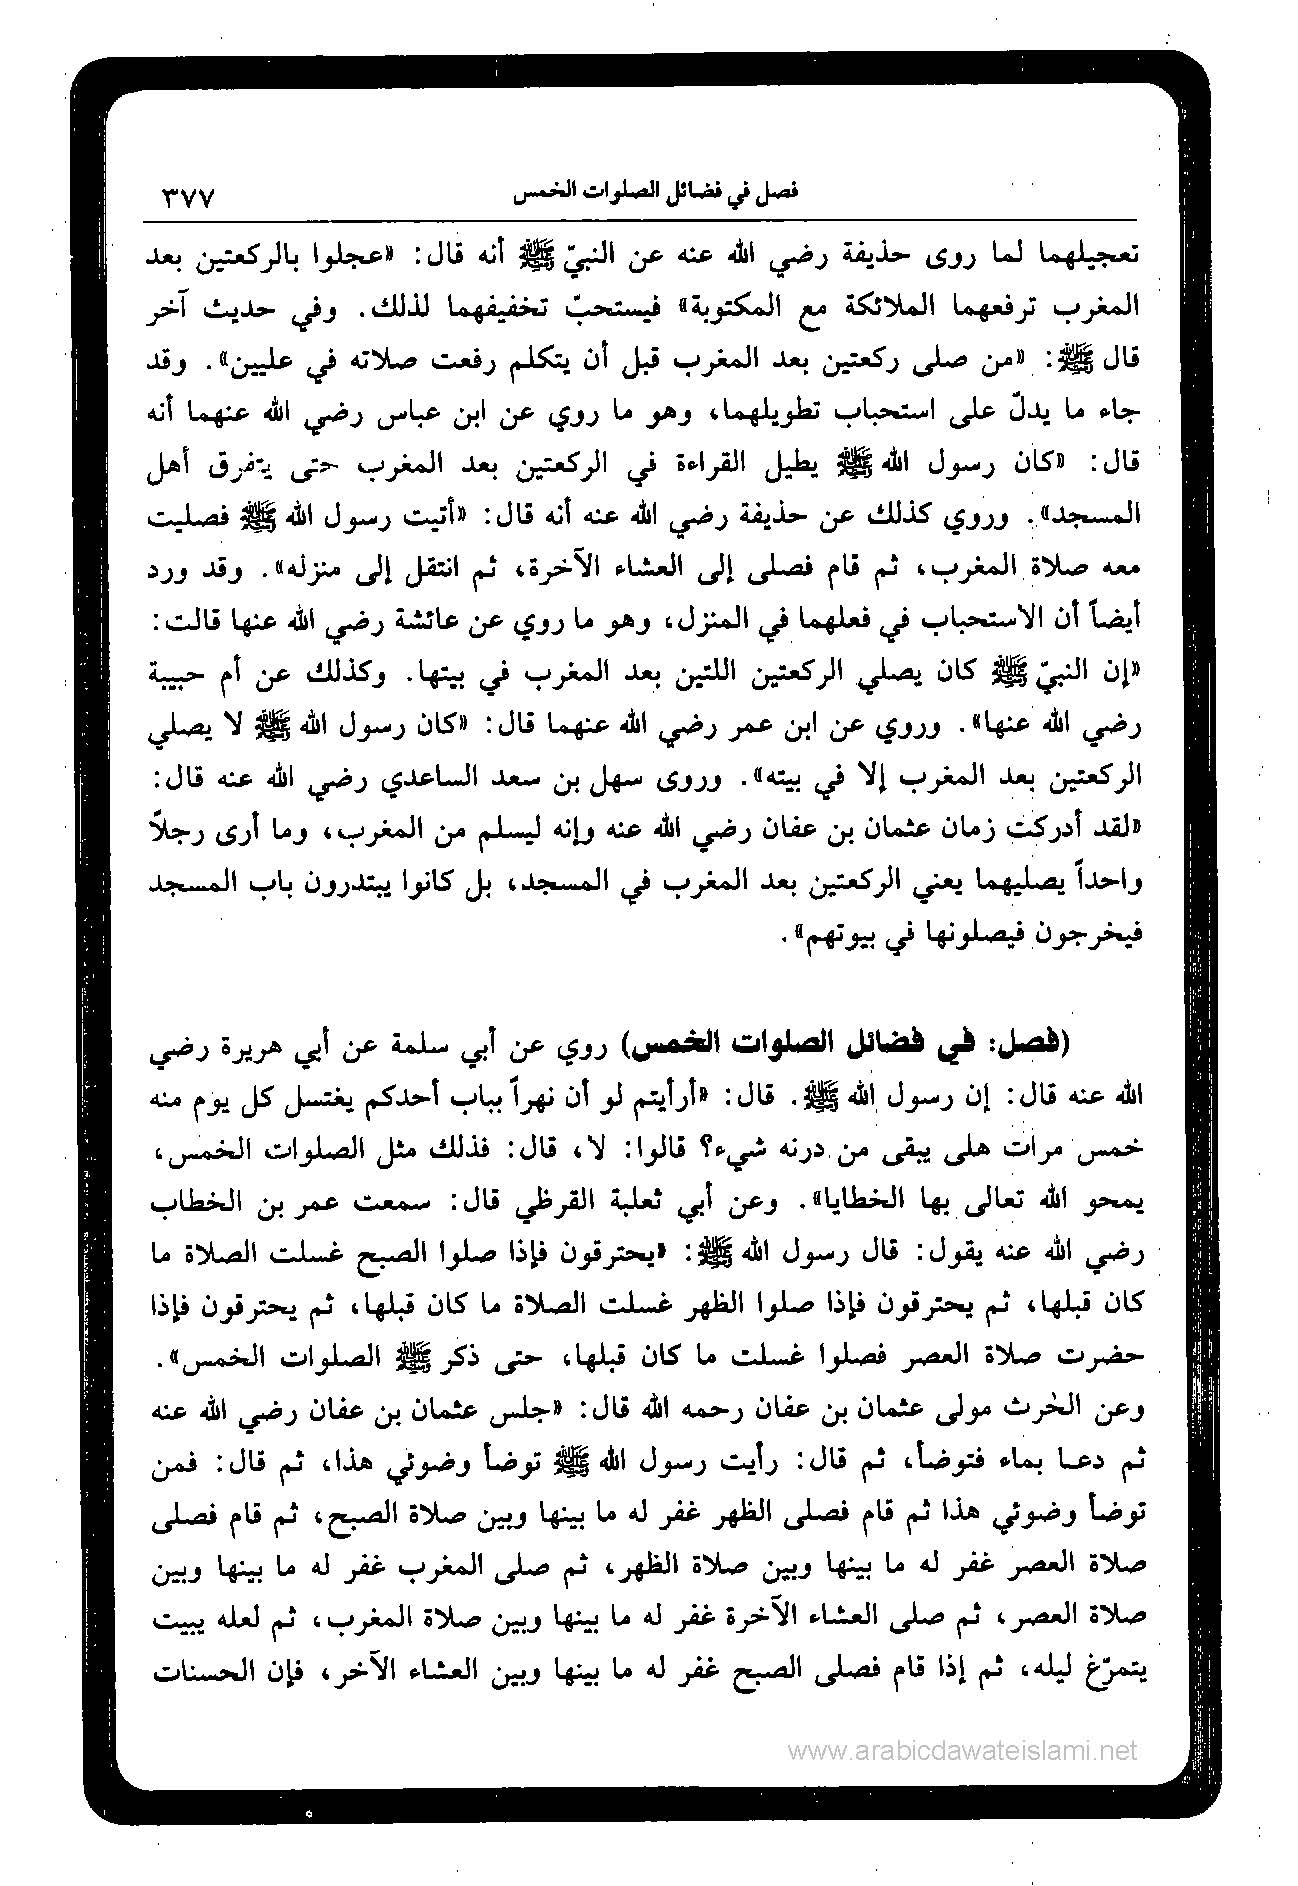 فصل في فضائل الصلوات الخمس ٣٧٧
تعجيلهما لما روى حذيفة رضي الله عنه عن النبيّ ﷺ أنه قال: «عجلوا بالركعتين بعد
المغرب ترفعهما الملائكة مع المكتوبة» فيستحبّ تخفيفهما لذلك. وفي حديث آخر
قال ﷺ: «من صلى ركعتين بعد المغرب قبل أن يتكلم رفعت صلاته في عليين». وقد
جاء ما يدلّ على استحباب تطويلهما، وهو ما روي عن ابن عباس رضي الله عنهما أنه
قال: «كان رسول الله ﷺ يطيل القراءة في الركعتين بعد المغرب حتى يتفرق أهل
المسجد». وروي كذلك عن حذيفة رضي الله عنه أنه قال: «أتيت رسول الله ﷺ فصليت
معه صلاة المغرب، ثم قام فصلى إلى العشاء الآخرة، ثم انتقل إلى منزله». وقد ورد
أيضاً أن الاستحباب في فعلهما في المنزل، وهو ما روي عن عائشة رضي الله عنها قالت:
«إن النبيّ ﷺ كان يصلي الركعتين اللتين بعد المغرب في بيتها. وكذلك عن أم حبيبة
رضي الله عنها». وروي عن ابن عمر رضي الله عنهما قال: «كان رسول الله ﷺ لا يصلي
الركعتين بعد المغرب إلا في بيته». وروى سهل بن سعد الساعدي رضي الله عنه قال:
«لقد أدركت زمان عثمان بن عفان رضي الله عنه وإنه ليسلم من المغرب، وما أرى رجلاً
واحداً يصليهما يعني الركعتين بعد المغرب في المسجد، بل كانوا يبتدرون باب المسجد
فيخرجون فيصلونها في بيوتهم».
(فصل: في فضائل الصلوات الخمس) روي عن أبي سلمة عن أبي هريرة رضي
الله عنه قال: إن رسول الله ﷺ. قال: «أرأيتم لو أن نهراً بباب أحدكم يغتسل كل يوم منه
خمس مرات هلى يبقى من درنه شيء؟ قالوا: لا، قال: فذلك مثل الصلوات الخمس،
يمحو الله تعالى بها الخطايا». وعن أبي ثعلبة القرظي قال: سمعت عمر بن الخطاب
رضي الله عنه يقول: قال رسول الله ﷺ: «يحترقون فإذا صلوا الصبح غسلت الصلاة ما
كان قبلها، ثم يحترقون فإذا صلوا الظهر غسلت الصلاة ما كان قبلها، ثم يحترقون فإذا
حضرت صلاة العصر فصلوا غسلت ما كان قبلها، حتى ذكر ﷺ الصلوات الخمس».
وعن الحٰرث مولى عثمان بن عفان رحمه الله قال: «جلس عثمان بن عفان رضي الله عنه
ثم دعا بماء فتوضأ، ثم قال: رأيت رسول الله ﷺ توضأ وضوئي هذا، ثم قال: فمن
توضأ وضوئي هذا ثم قام فصلى الظهر غفر له ما بينها وبين صلاة الصبح، ثم قام فصلى
صلاة العصر غفر له ما بينها وبين صلاة الظهر، ثم صلى المغرب غفر له ما بينها وبين
صلاة العصر، ثم صلى العشاء الآخرة غفر له ما بينها وبين صلاة المغرب، ثم لعله يبيت
يتمرّغ ليله، ثم إذا قام فصلى الصبح غفر له ما بينها وبين العشاء الآخر، فإن الحسنات
www.arabicdawateislami.net